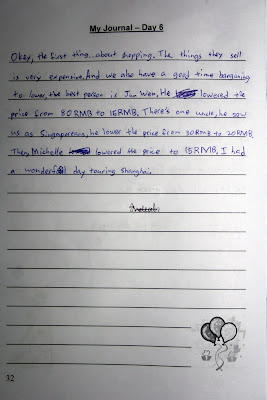 My Journal – Day 6
Okey, the first thing...about shopping. The things they sell
is very expensive. And we also have a good time bargaining
to lower, the best person is Jun Wen, He lowered the
price from 80 RMB to 15RMB. There's one uncle, he saw
us as Singaporeans, he lower the price from 30RMB to 20RMB
Then, Michelle lowered the price to 15RMB. I had
a wonderful day touring Shanghai.
32